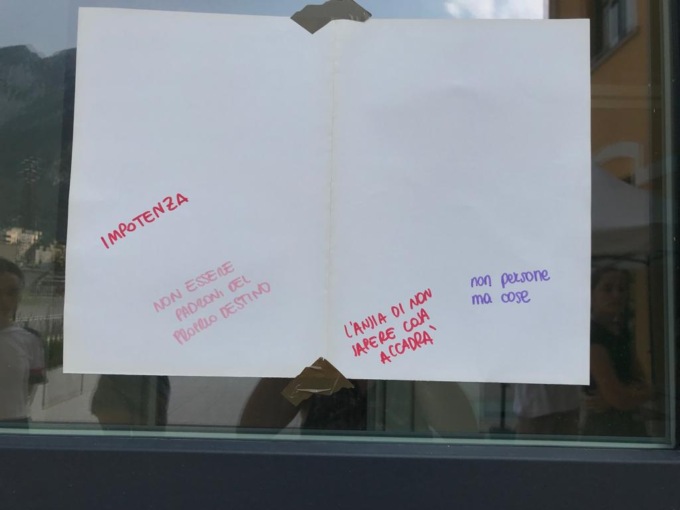 IMPOTENZA
NON ESSERE
PADRONI DEL
PROPRIO DESTINO
L'ANSIA DI NON
SAPERE COSA
ACCADRÀ
non persone
ma cose